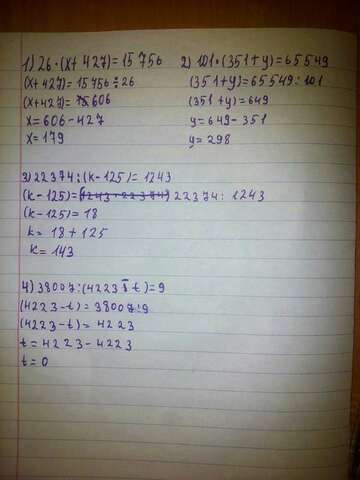 1) 26·(x+427)=15 756
(x+427)=15756÷26
(x+427)=606
x=606-427
x=179
2) 101·(351+y)=65549
(351+y)=65549:101
(351+y)=649
y=649-351
y=298
3) 22374:(k-125)=1243
(k-125)=(1243·22374) 22374:1243
(k-125)=18
k=18+125
k=143
4) 38007:(4223-t)=9
(4223-t)=38007:9
(4223-t)=4223
t=4223-4223
t=0